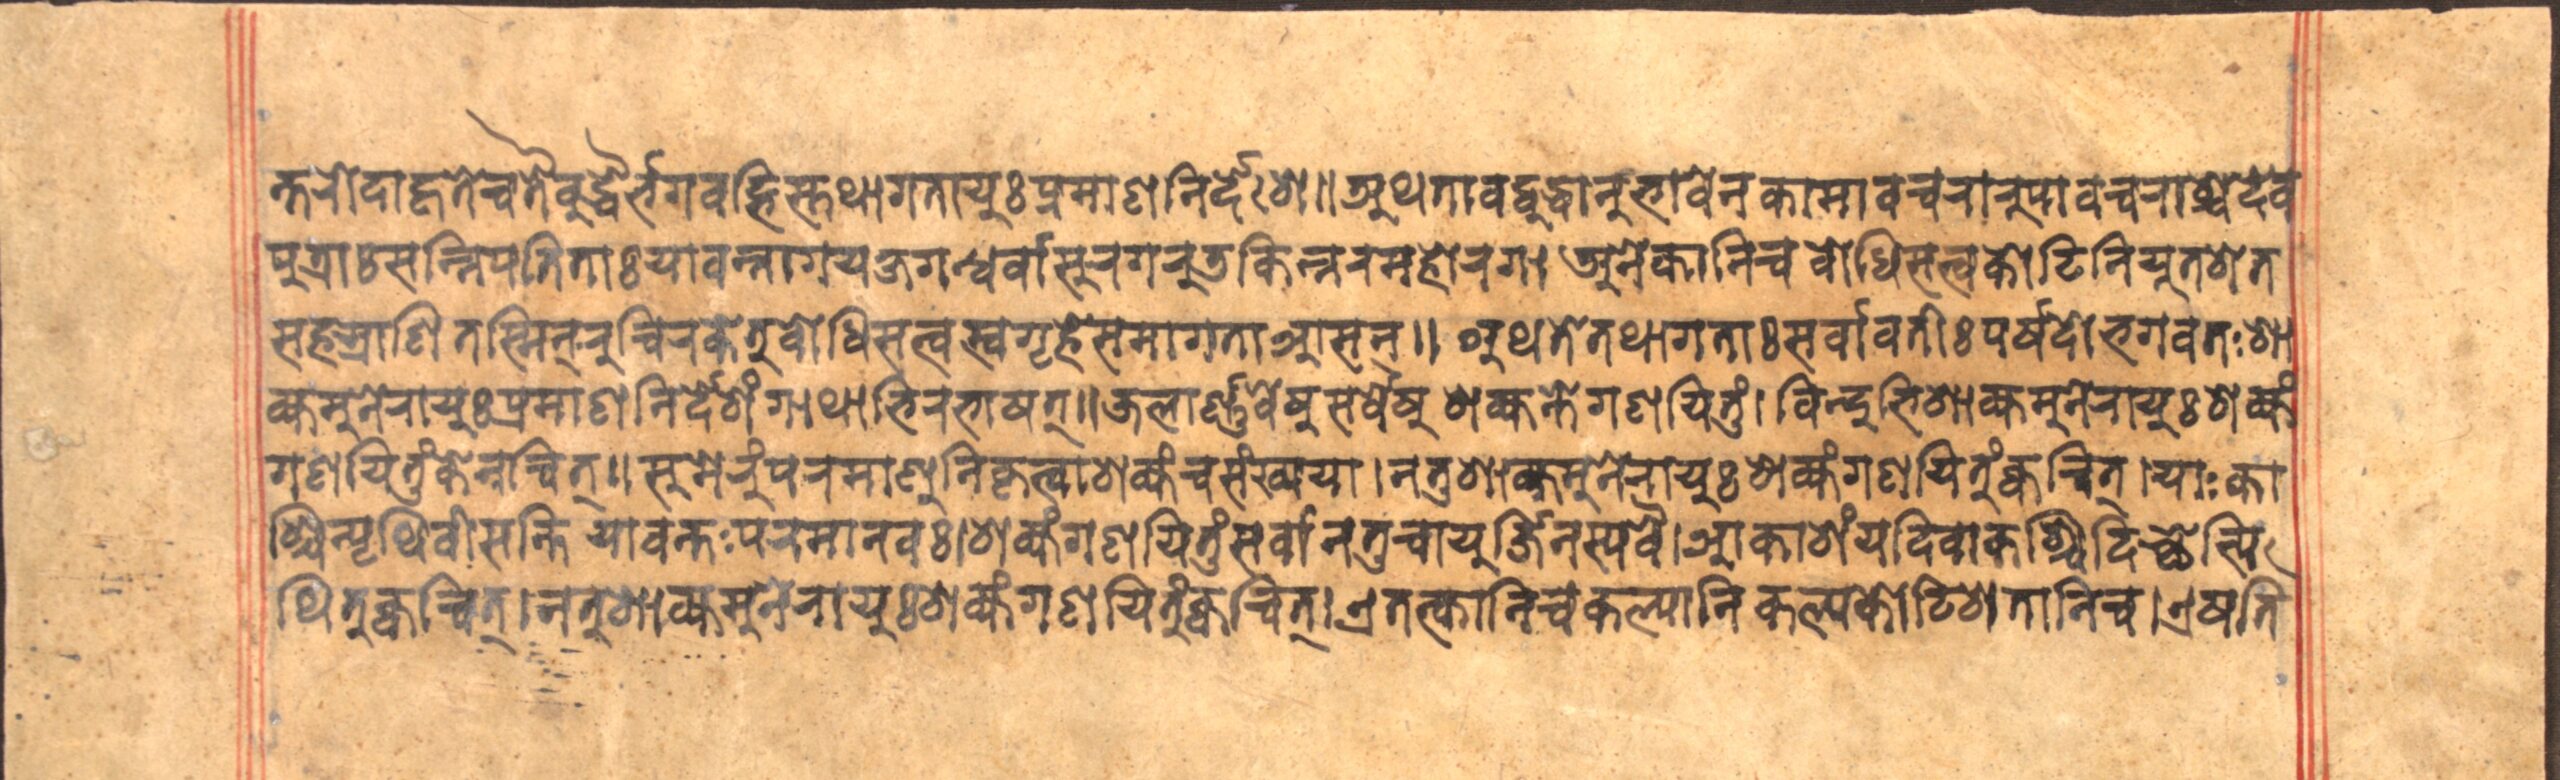 न्तरोदाहृतेचतैबुद्धैर्भगवद्भिस्तथागतायुःप्रमाणनिर्देशे॥अथतावद्बुद्धानुभावेनकामावचरारुपावचराश्चदेव
पुत्राःसन्निपतिताःयावन्नागयक्षगन्धर्वासुरगरुडकिन्नरमहोरगा अनेकानिचबोधिसत्वकोटिनियुतशत
सहस्राणि तस्मिन्रुचिरकेतुबोधिसत्वस्वगृहेसमागताआसन्॥ अथतेतथागताःसर्वावतीःपर्षदोभगवतःशा
क्यमुनेरायुःप्रमाणनिर्देशंगाथाभिरभाषत्॥जलार्ण्णवेषुसर्वेषुशक्यन्तेगणयितुं।विन्दुभिशाक्यमुनेरायुःशक्यं
गणयितुंकेनचित्॥सुमेरुंपरमाणुनिकृत्वाशक्यंचसंख्यया।नतुशाक्यमुनेरायुःशक्यंगणयितुंक्वचित्।याःका
श्चित्पृथिवीसन्ति यावन्तःपरमानवः।शक्यंगणयितुंसर्वानतुचायुर्जिनस्यवै।आकाशंयदिवाकश्चिदिच्छेत्पि
थितुक्वचित्।नतुशाक्यमुनेरायुःशक्यंगणयितुंक्वचित्।एतत्कानिचकल्पानिकल्पकोटिशतानिच।एषति